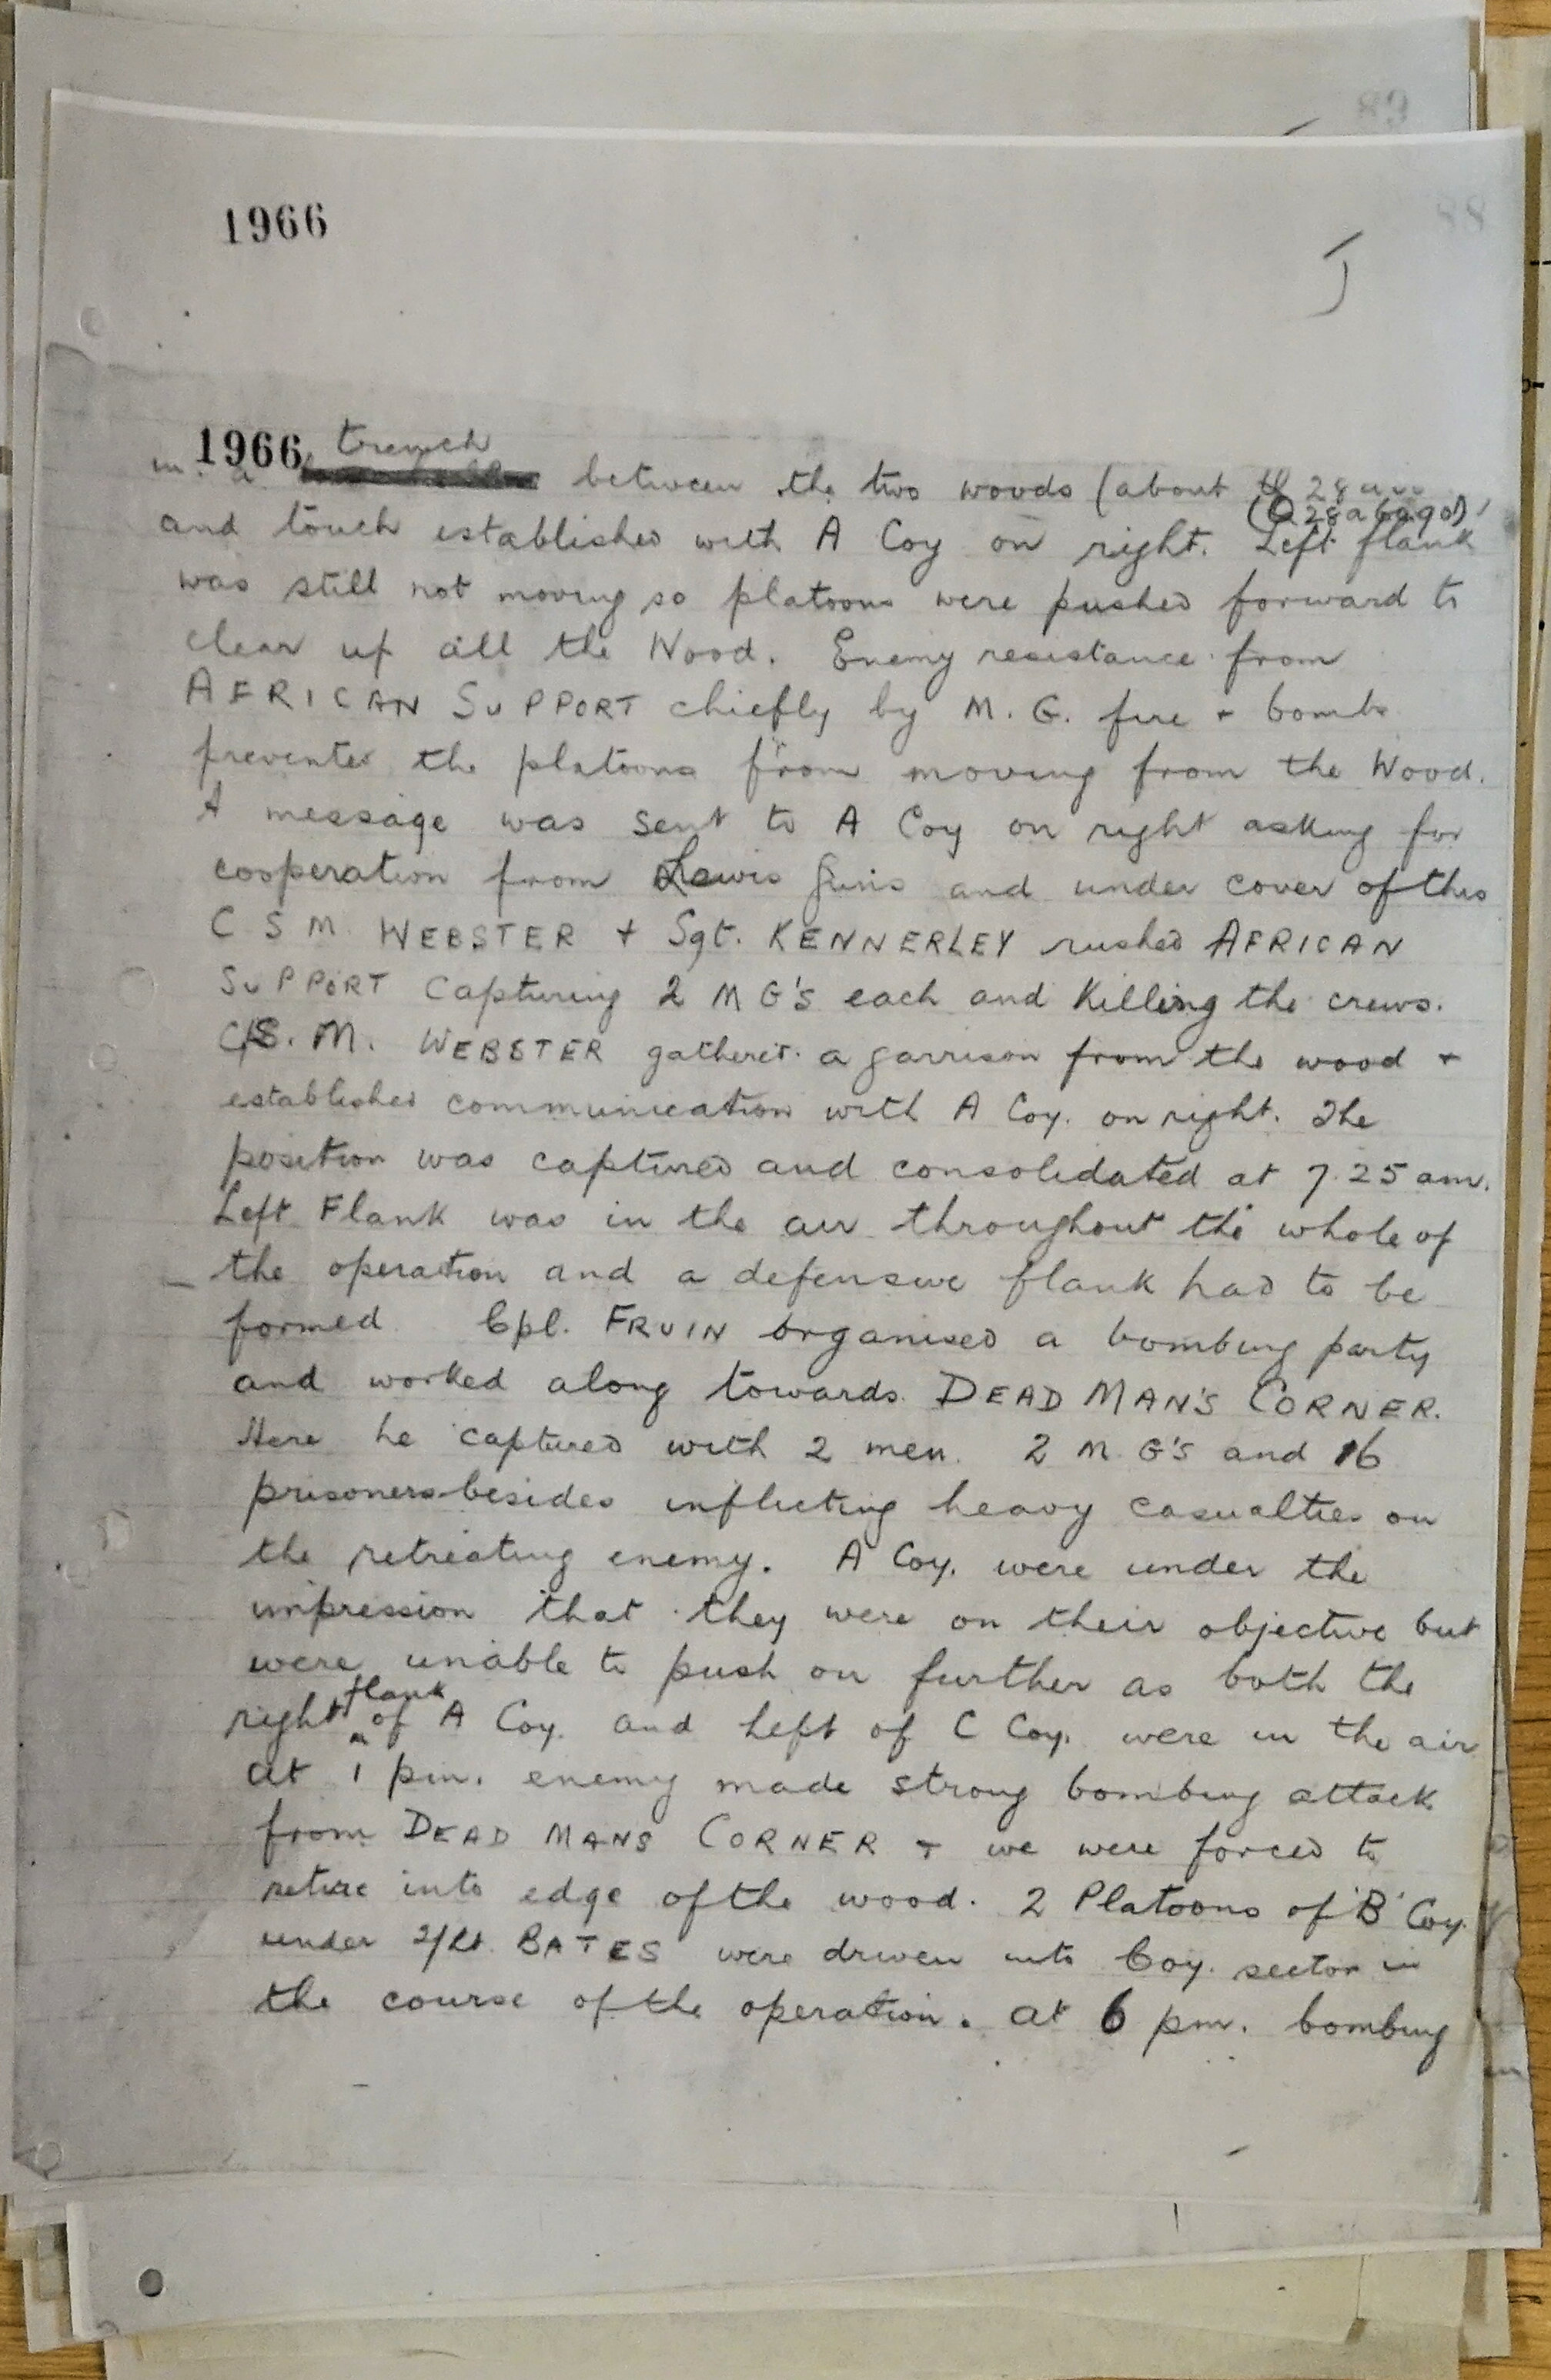 89
88
1966
1966 trench
in a between the two woods (about 28a
(Q28a6090)
and touch established with A Coy on right. Left flank
was still not moving so platoons were pushed forward to
clear up all the Wood. Enemy resistance from
AFRICAN SUPPORT chiefly by M. G. fire + bombs
prevented the platoons from moving from the Wood.
A message was sent to A Coy on right asking for
cooperation from Lewis Guns and under cover of this
C S M WEBSTER + Sgt. KENNERLEY rushed AFRICAN
SUPPORT Capturing 2 M G's each and Killing the crews.
C.S.M. WEBSTER gathered a garrison from the wood +
established communication with A Coy. on right. The
position was captured and consolidated at 7.25 am.
Left Flank was in the air throughout the whole of
the operation and a defensive flank had to be
formed. Cpl. FRUIN organised a bombing party
and worked along towards DEAD MAN'S CORNER.
Here he captured with 2 men. 2 M. G's and 16
prisoners besides inflicting heavy casualties on
the retreating enemy. A Coy. were under the
impression that they were on their objective but
were unable to push on further as both the
right flank of A Coy. and left of C Coy. were in the air
at 1 pm. enemy made strong bombing attack
from DEAD MANS CORNER + we were forced to
retire into edge of the wood. 2 Platoons of 'B' Coy.
under 2/Lt. BATES were driven into Coy. sector in
the course of the operation. at 6 pm. bombing